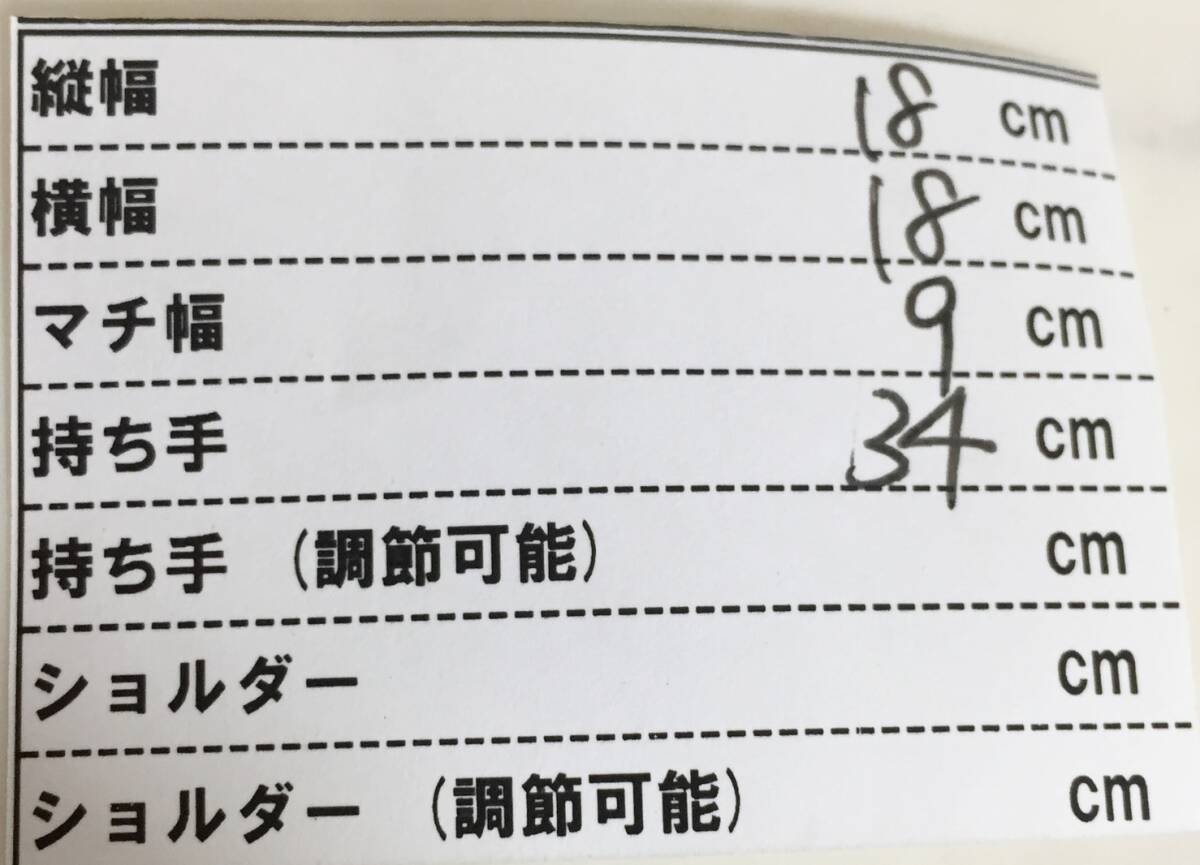 縦幅 18 cm
横幅 18 cm
マチ幅 9 cm
持ち手 34 cm
持ち手 (調節可能) cm
ショルダー cm
ショルダー (調節可能) cm